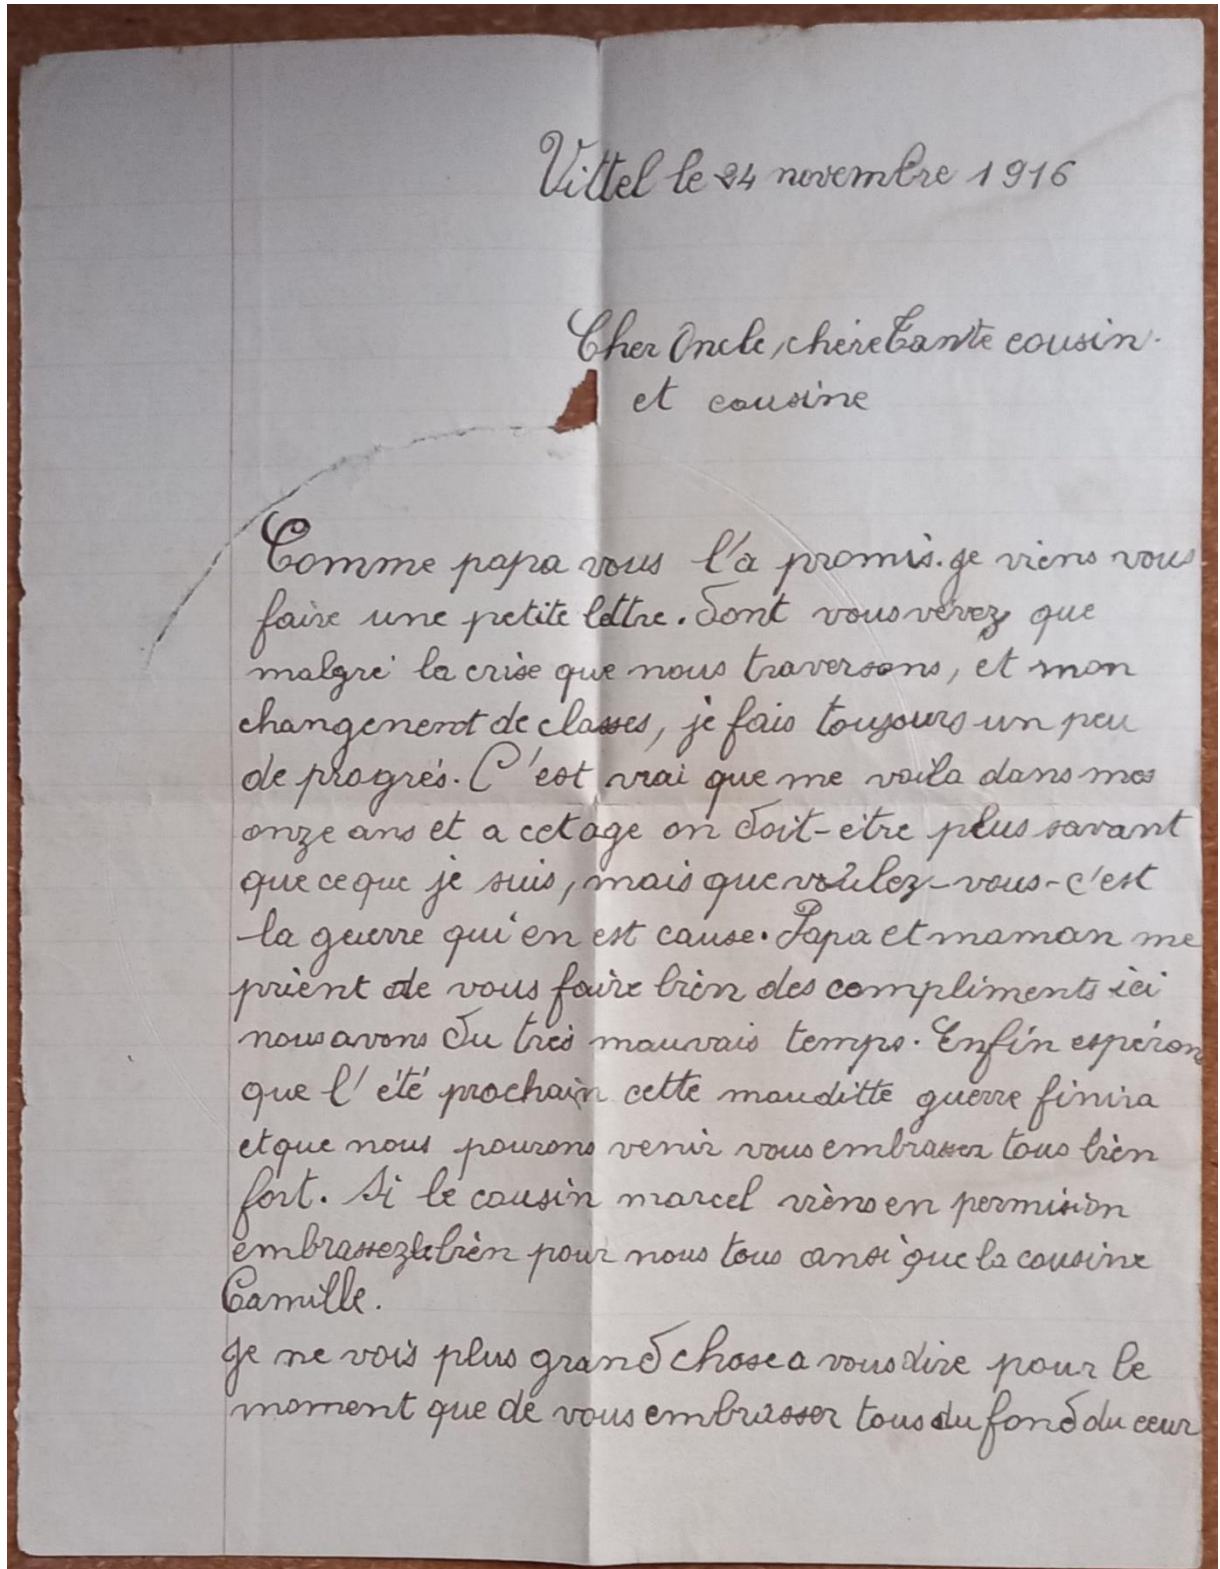 Vittel le 24 novembre 1916
Cher Oncle, chère Tante cousin
et cousine
Comme papa vous l'a promis. je viens vous
faire une petite lettre. dont vous verez que
malgré la crise que nous traversons, et mon
changement de classes, je fais toujours un peu
de progrès. C'est vrai que me voila dans mes
onze ans et a cet age on doit-etre plus savant
que ce que je suis, mais que voulez-vous-c'est
la guerre qui en est cause. Papa et maman me
prient de vous faire bien des compliments ici
nous avons du très mauvais temps. Enfin espéron
que l'été prochain cette mauditte guerre finira
et que nous pourons venir vous embrasser tous bien
fort. Si le cousin marcel viens en permision
embrassez le bien pour nous tous ansi que la cousine
Camille.
je ne vois plus grand chose a vous dire pour le
moment que de vous embrasser tous du fond du ceur